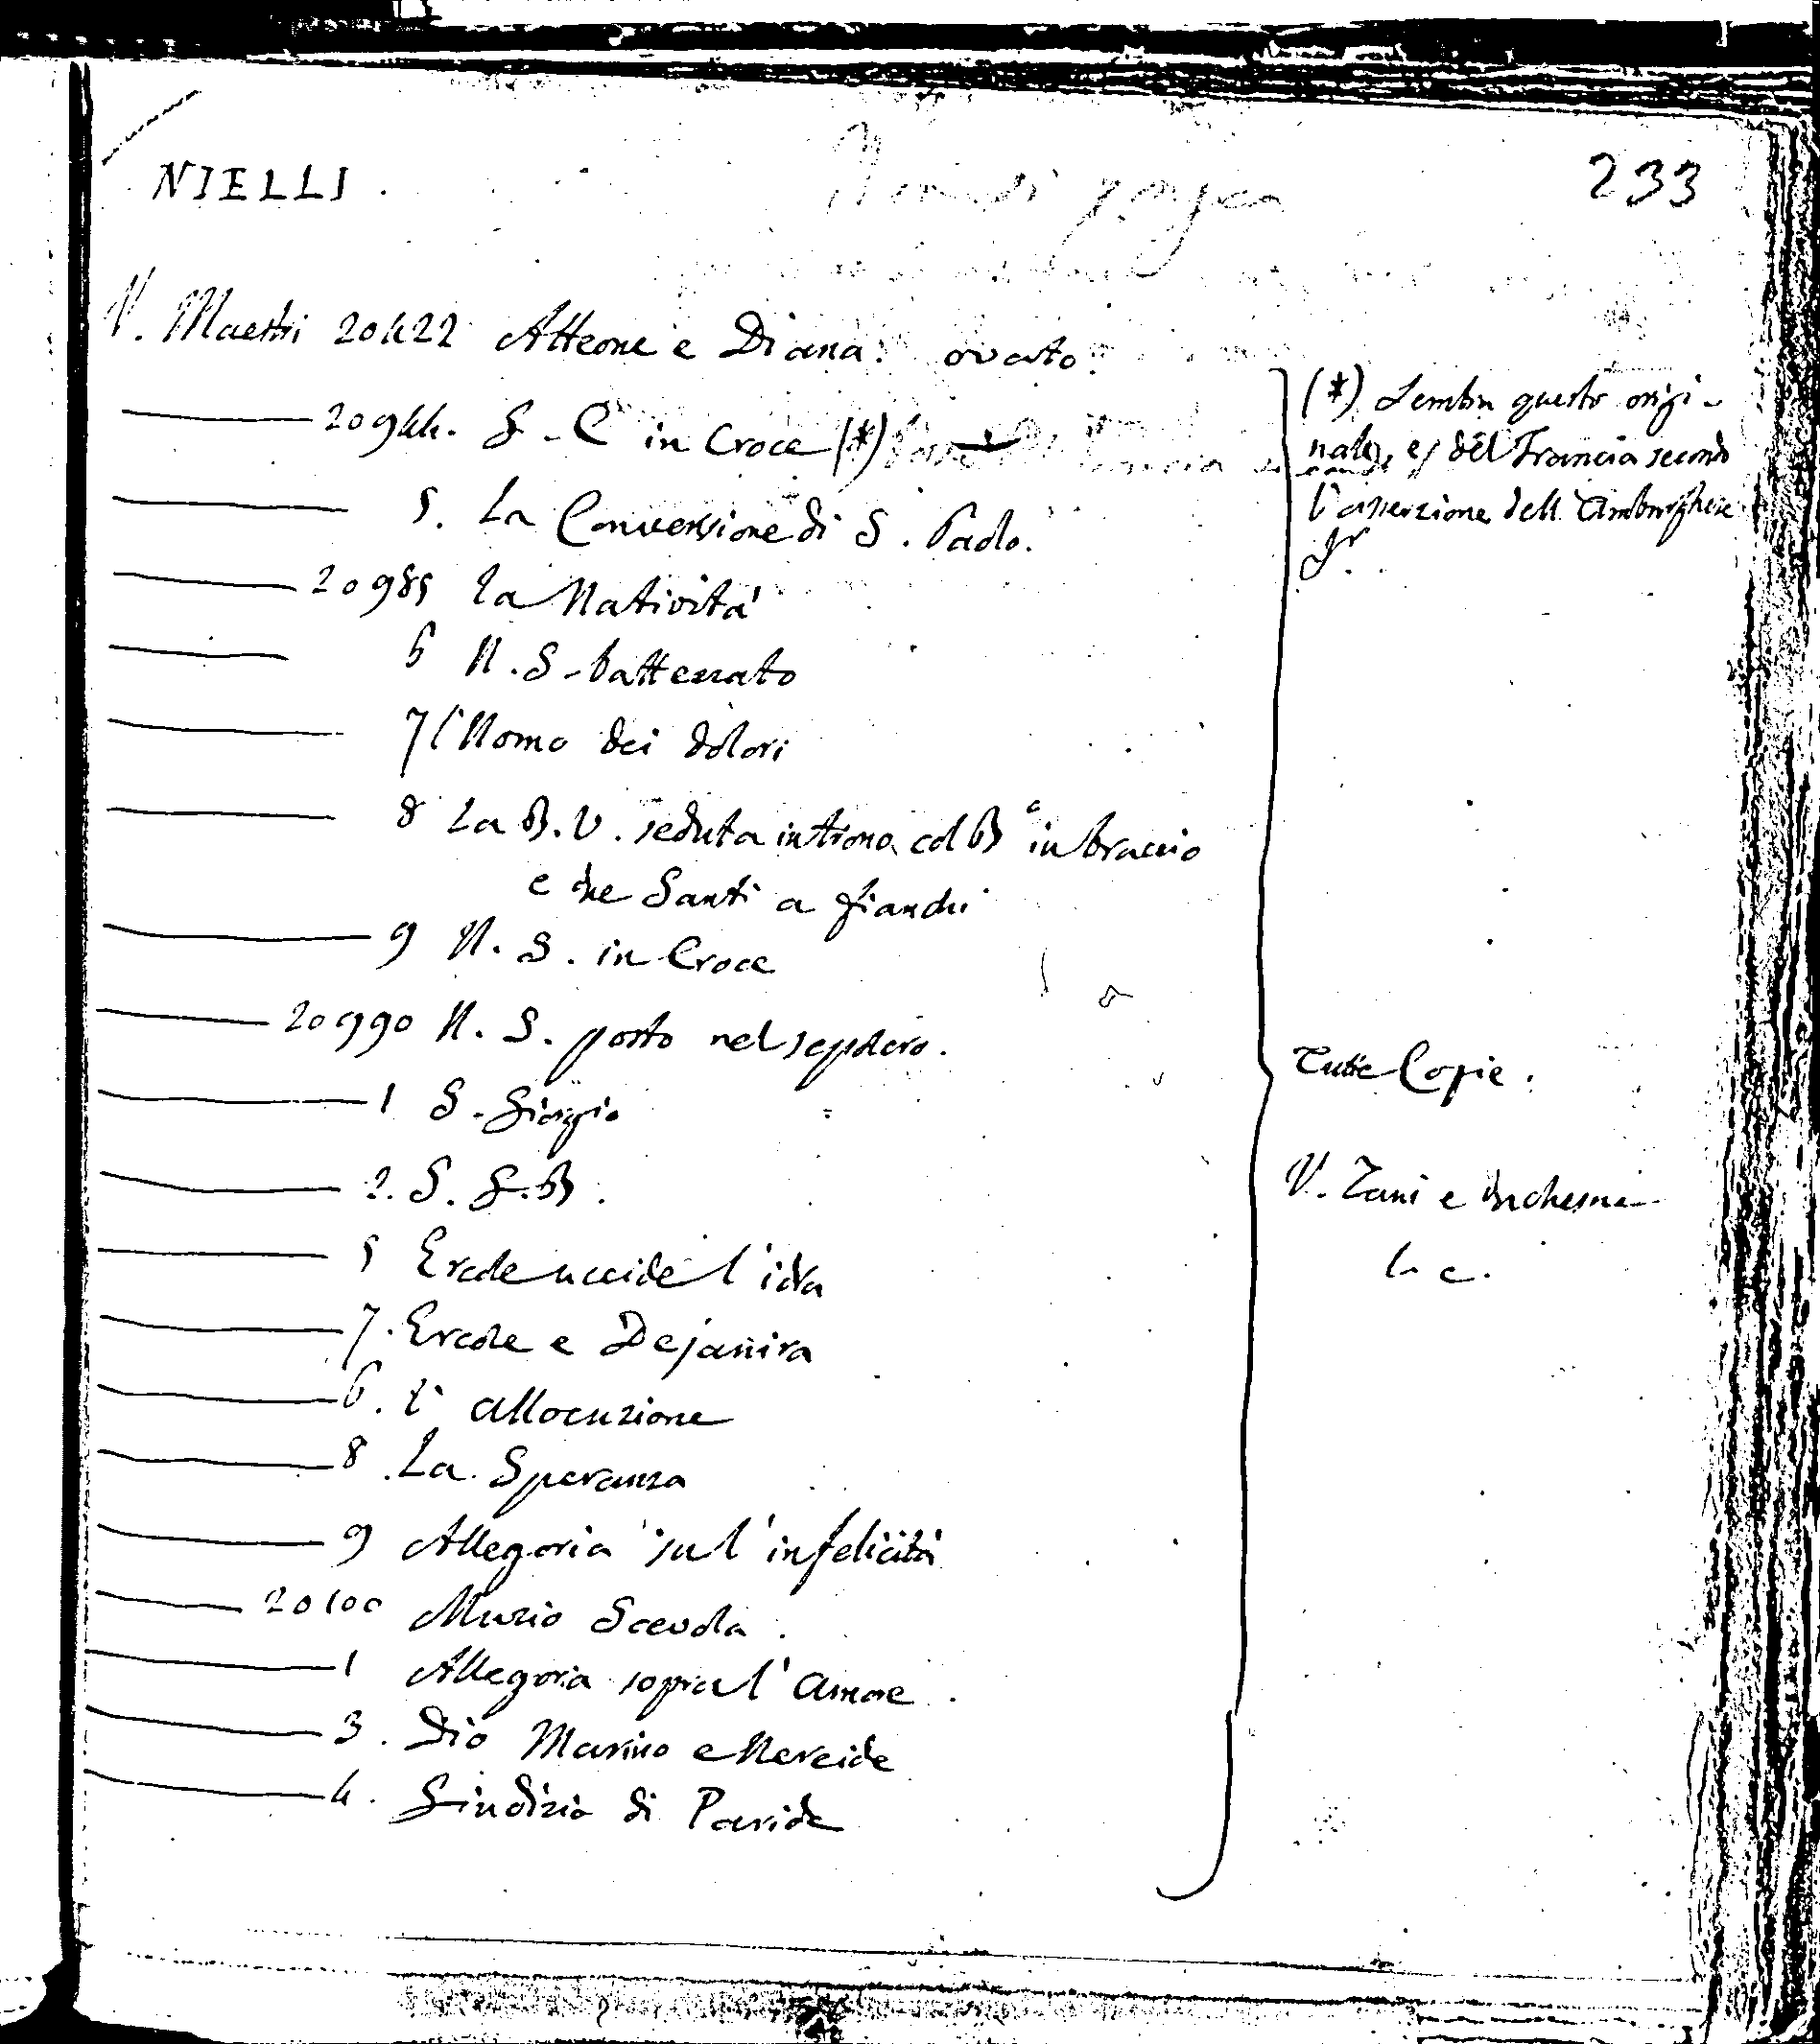 NIELLI. 233
V. Maestri 20422 Atteone e Diana. ovato.
20944. G. C in Croce (*)
5. La Conversione di S. Paolo.
20985 la Natività
6 N. S. battezzato
7 l'Uomo dei dolori
8 La B. V. seduta in trono col Bº in braccio
e due Santi a fianchi
9 N. S. in Croce
20990 N. S. posto nel sepolcro.
1 S. Giorgio
2. S. G. B.
5 Ercole uccide l'idra
7. Ercole e Dejanira
6. l' allocuzione
8. La Speranza
9 Allegoria sul' infelicità
20100 Muzio Scevola.
1 Allegoria sopra l' Amore.
3. Dio Marino e Nereide
4. Giudizio di Paride
(*) Sembra questo origi-
nale, e del Francia secondo
l'asserzione dell'Amburghese
Tutte Copie.
V. Zani e Duchesne
l. c.